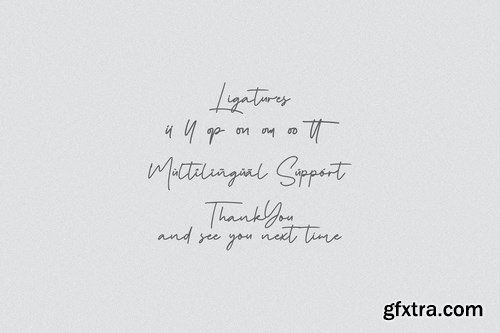 Ligatures
ii ll op on om oo tt
Mùltilingüãl Sùppórt
ThankYou
and see you next time
gfxtra.com